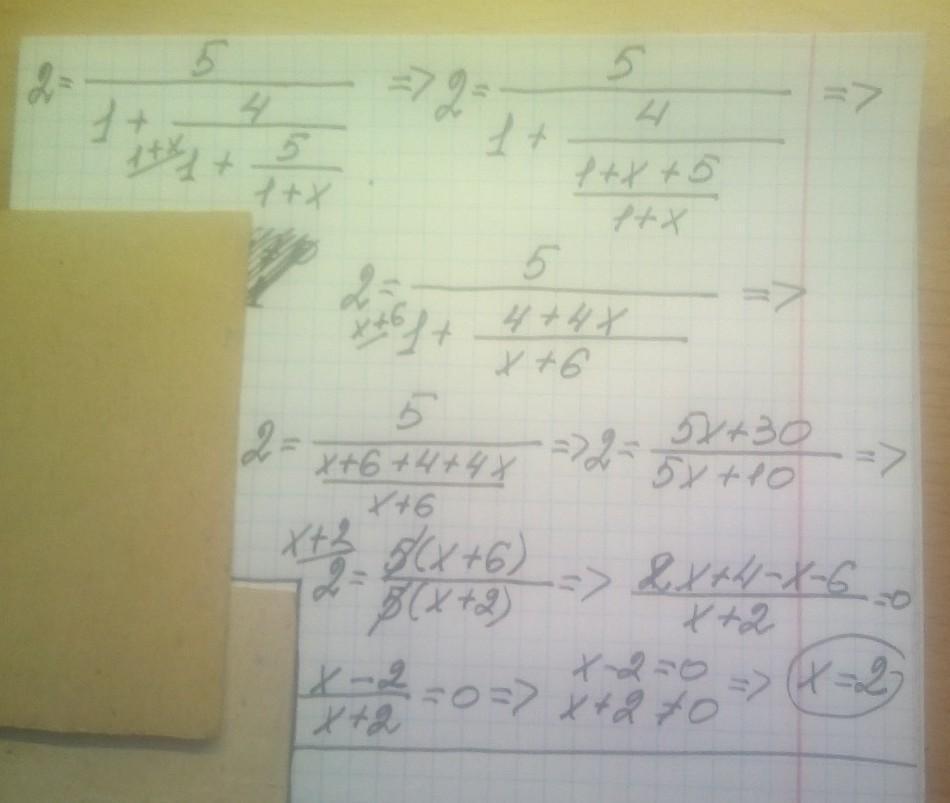 2 = 5 / (1 + 4 / (1+x/ 1 + 5 / (1+x))) => 2 = 5 / (1 + 4 / ((1+x+5) / (1+x))) =>
2 = 5 / (x+6/ 1 + (4+4x) / (x+6)) =>
2 = 5 / ((x+6+4+4x) / (x+6)) => 2 = (5x+30) / (5x+10) =>
x+2/ 2 = 5(x+6) / 5(x+2) => (2x+4-x-6) / (x+2) = 0
(x-2) / (x+2) = 0 => x-2=0 x+2≠0 => x=2